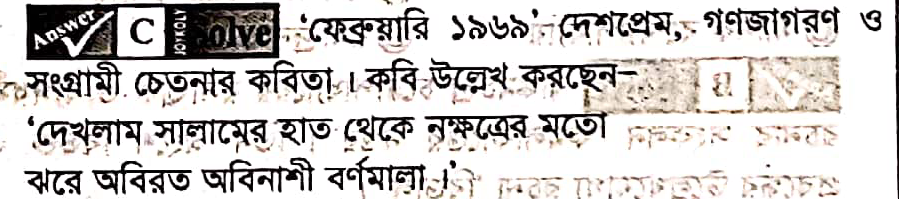 Answer C JOYKOLY Solve 'ফেব্রুয়ারি ১৯৬৯' দেশপ্রেম, গণজাগরণ ও
সংগ্রামী চেতনার কবিতা। কবি উল্লেখ করছেন–
'দেখলাম সালামের হাত থেকে নক্ষত্রের মতো
ঝরে অবিরত অবিনাশী বর্ণমালা।'